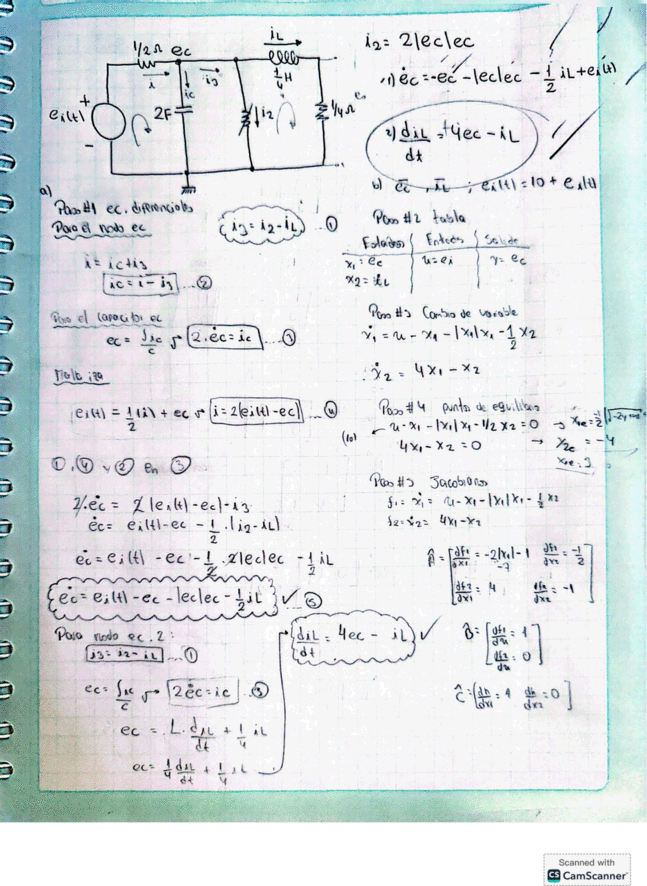 1/2 Ω
ec
iL
i
ic
i3
1/4 H
ei(t)
+
-
2F
i2
1/4 Ω
i2 = 2|ec|ec
1) ėc = -ec - |ec|ec - 1/2 iL + ei(t)
2) diL/dt = +4ec - iL
b) ec̄, iL̄ ; ei(t) = 10 + ei(t)
a)
Paso #1 ec. diferenciales
Para el nodo ec
i3 = i2 - iL ... ①
i = ic + i3
ic = i - i3 ... ②
Para el capacitor ec
ec = ∫ic/c → 2·ėc = ic ... ③
Malla izq
ei(t) = 1/2 (i) + ec → i = 2(ei(t) - ec) ... ④
①, ④ y ② en ③
2·ėc = 2(ei(t) - ec) - i3
ėc = ei(t) - ec - 1/2·(i2 - iL)
ėc = ei(t) - ec - 1/2·2|ec|ec - 1/2 iL
ėc = ei(t) - ec - |ec|ec - 1/2 iL ✓ ⑤
Para nodo ec.2:
i3 = i2 - iL ... ①
ec = ∫ic/c → 2ėc = ic ... ③
ec = L·diL/dt + 1/4 iL
ec = 1/4 diL/dt + 1/4 iL
diL/dt = 4ec - iL ✓
Paso #2 tabla
Estados | Entrada | Salida
x1 = ec | u = ei | y = ec
x2 = iL
Paso #3 Cambio de variable
ẋ1 = u - x1 - |x1|x1 - 1/2 x2
ẋ2 = 4x1 - x2
Paso #4 puntos de equilibrio
u - x1 - |x1|x1 - 1/2 x2 = 0
(10)
4x1 - x2 = 0 → x2e = -4
Paso #5 Jacobiano
f1 = ẋ1 = u - x1 - |x1|x1 - 1/2 x2
f2 = ẋ2 = 4x1 - x2
Â = [df1/dx1 = -2|x1| - 1 df1/dx2 = -1/2
df2/dx1 = 4 df2/dx2 = -1]
B̂ = [df1/du = 1
df2/du = 0]
Ĉ = [dh/dx1 = 1 dh/dx2 = 0]
Scanned with
CS CamScanner